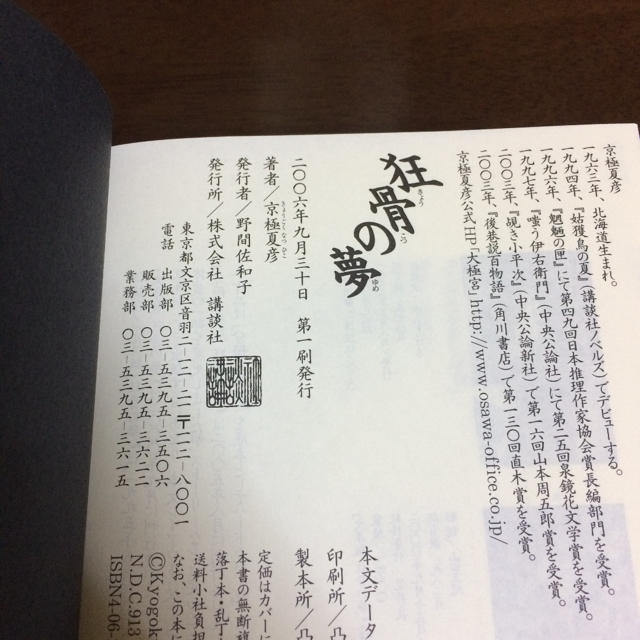 京極夏彦
一九六三年、北海道生まれ。
一九九四年、『姑獲鳥の夏』(講談社ノベルス)でデビューする。
一九九六年、『魍魎の匣』にて第四九回日本推理作家協会賞長編部門を受賞。
一九九七年、『嗤う伊右衛門』(中央公論社)にて第二五回泉鏡花文学賞を受賞。
二〇〇三年、『覘き小平次』(中央公論新社)で第一六回山本周五郎賞を受賞。
二〇〇三年、『後巷説百物語』(角川書店)で第一三〇回直木賞を受賞。
京極夏彦公式HP「大極宮」http://www.osawa-office.co.jp/
狂骨の夢
きょう
こつ
ゆめ
二〇〇六年九月三十日 第一刷発行
著者/京極夏彦
きょうごくなつひこ
発行者/野間佐和子
発行所/株式会社 講談社
東京都文京区音羽二-一二-二一 〒一一二-八〇〇一
電話 出版部 〇三-五三九五-三五〇六
販売部 〇三-五三九五-三六二二
業務部 〇三-五三九五-三六一五
本文データ
印刷所/凸
製本所/凸
定価はカバーに
本書の無断複
落丁本・乱丁
送料小社負担
なお、この本に
©Kyogok
N.D.C.913
ISBN4-06-